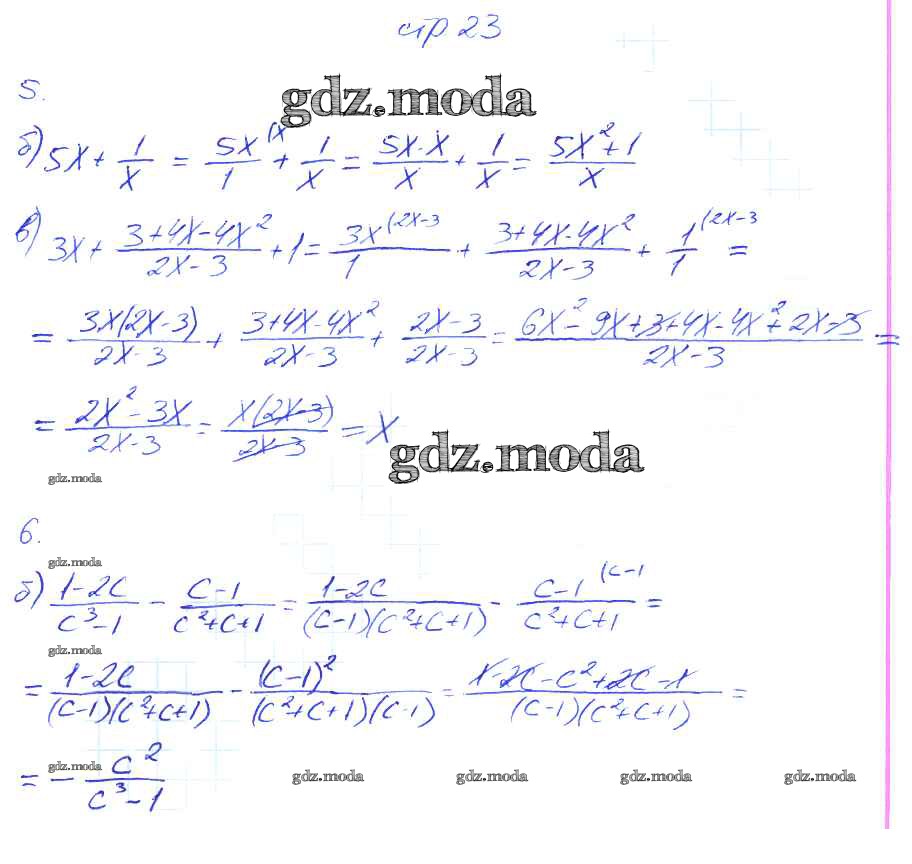 стр 23
5.
gdz.moda
б) 5x + 1/x = 5x/1 (x + 1/x = 5x·x/x + 1/x = (5x²+1)/x
в) 3x + (3+4x-4x²)/(2x-3) + 1 = 3x/1 (2x-3 + (3+4x-4x²)/(2x-3) + 1/1 (2x-3 =
= 3x(2x-3)/(2x-3) + (3+4x-4x²)/(2x-3) + (2x-3)/(2x-3) = (6x²-9x+3+4x-4x²+2x-3)/(2x-3) =
= (2x²-3x)/(2x-3) = x(2x-3)/(2x-3) = x
gdz.moda
gdz.moda
6.
gdz.moda
б) (1-2c)/(c³-1) - (c-1)/(c²+c+1) = (1-2c)/((c-1)(c²+c+1)) - (c-1)/(c²+c+1) (c-1 =
gdz.moda
= (1-2c)/((c-1)(c²+c+1)) - (c-1)²/((c²+c+1)(c-1)) = (1-2c-c²+2c-1)/((c-1)(c²+c+1)) =
gdz.moda
= - c²/(c³-1)
gdz.moda gdz.moda gdz.moda gdz.moda